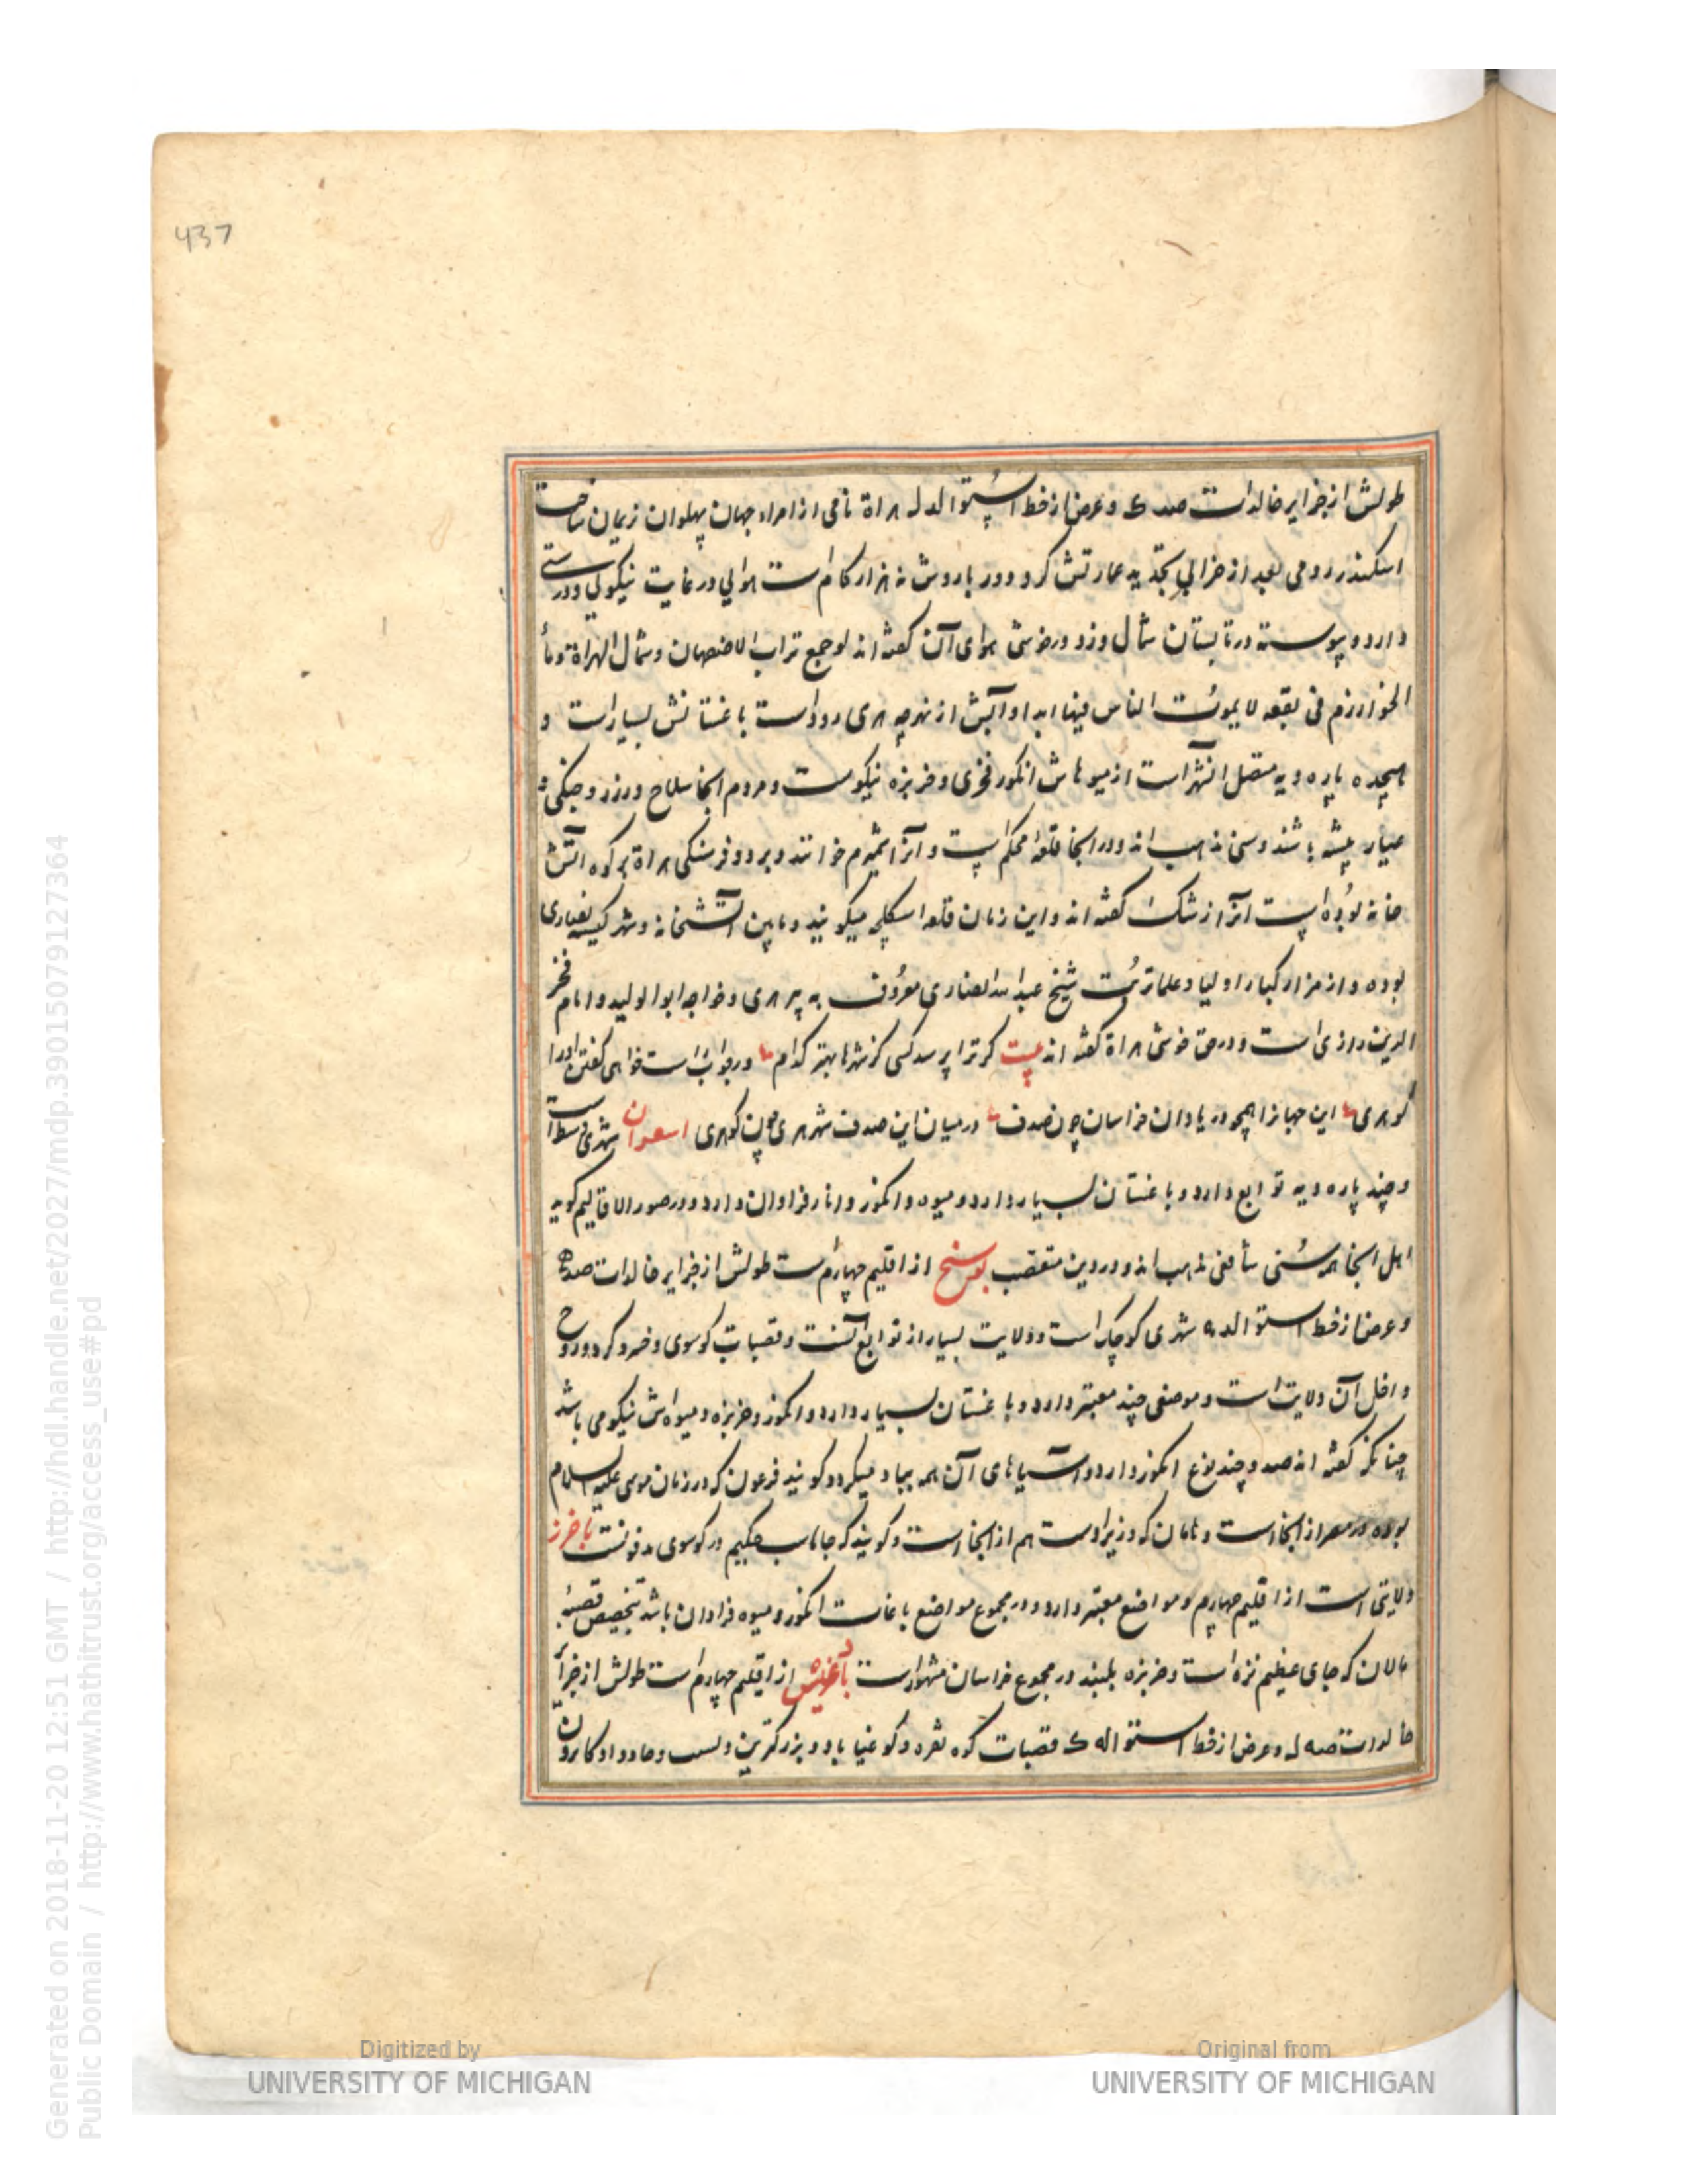 437
طولش از جزایر خالدات صد ک و عرض از خط استوا لد ل هراة نامی از امراء جهان پهلوان نریمان ساخت
اسکندر رومی بعد از خرابی تجدید عمارتش کرد و دور باروش نه هزار گام است هوایی در غایت نیکویی و درستی
دارد و پیوسته در تابستان شمال وزد و در خوشی هوای آن گفته اند لو جمع تراب الاصفهان و شمال الهراة و ماء
الخوارزم فی بقعه لا یموت الناس فیها ابدا و آبش از نهرچه هری رود است باغستانش بسیار است و
هیجده پاره دیه متصل انشهر است از میوهاش انگور فخری و خربزه نیکوست و مردم انجا سلاح ورز و جنگی و
عیار پیشه باشند و سنی مذهب اند و در انجا قلعهٔ محکم است و آنرا شمیرم خوانند و بر دو فرسنگی هراة بر کوه اتش
خانه بوده است انرا ازشک گفته اند و این زمان قلعه اسکلچه میگویند و مابین آتشخانه و شهر کنیسه نصاری
بوده و از مزار کبار اولیا و علما تربت شیخ عبدالله انصاری معروف به پیر هری و خواجه ابوالولید و امام فخر
الدین رازی است و در حق خوشی هراة گفته اند بیت گر ترا پرسد کسی کز شهرها بهتر کدام در جواب است خواهی گفتن او را
گو هری این جهانرا همچو دریا دان خراسان چون صدف در میان این صدف شهر هری چون گوهری اسفران شهری وسط است
و چند پاره دیه توابع دارد و باغستان بسیار دارد و میوه و انگور و انار فراوان دارد و در صور الاقالیم گوید
اهل انجا همه سنی شافعی مذهب اند و در دین متعصب بوسنج از اقلیم چهارم است طولش از جزایر خالدات صد
و عرض از خط استوا لد ه شهری کوچک است و ولایت بسیار از توابع آنست و قصبات کوسوی و خسرو گرد و روح
داخل آن ولایت است و موضعی چند معتبر دارد و باغستان بسیار دارد و انگور و خربزه و میوه اش نیکو می باشد
چنانکه گفته اند صد و چند نوع انگور دارد و آسیاهای آن همه بباد میگردد گویند فرعون که در زمان موسی علیه السلام
بوده در مصر از انجا است و هامان که وزیر اوست هم از انجا است و گویند که جاماسب حکیم در کوسوی مدفونست باخرز
ولایتی است از اقلیم چهارم و مواضع معتبر دارد و در مجموع مواضع باغات انگور و میوه فراوان باشد بتخصیص قصبه
مالان که جای عظیم نزه است و خربزه بلبند در مجموع خراسان مشهور است بادغیس از اقلیم چهارم است طولش از جزایر
خالدات صد لہ و عرض از خط استوا له ک قصبات کوه نقره و کوه غنیا باد و بزرگترین و لسب و جادوا و کابرون
Digitized by
UNIVERSITY OF MICHIGAN
Original from
UNIVERSITY OF MICHIGAN
Generated on 2018-11-20 12:51 GMT / http://hdl.handle.net/2027/mdp.39015079127364
Public Domain / http://www.hathitrust.org/access_use#pd